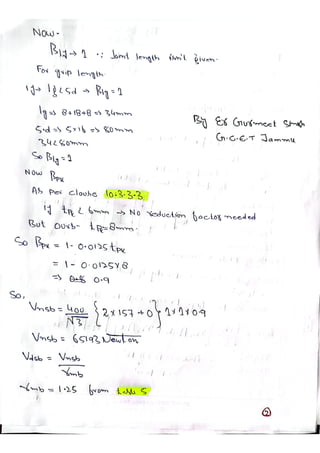 Now-
βlj → 1 ∵ Joint length isn't given.
For grip length
if lg ≤ 5d → βlg = 1
lg => 8+18+8 => 34mm
5d => 5×16 => 80mm
34 < 80mm
So βlg = 1
By Er Gurmeet Singh
G.C.E.T Jammu
Now βpk
As per clause 10.3.3.3
if tpk < 6mm → No reduction factor needed
But ours- tp = 8mm.
So βpk = 1 - 0.0125 tpk
= 1 - 0.0125×8
=> 0.9
So,
Vnsb = 400/√3 {2×157+0} 1×1×0.9
Vnsb = 65193 Newton
Vdsb = Vnsb/γmb
γmb = 1.25 from table 5
2